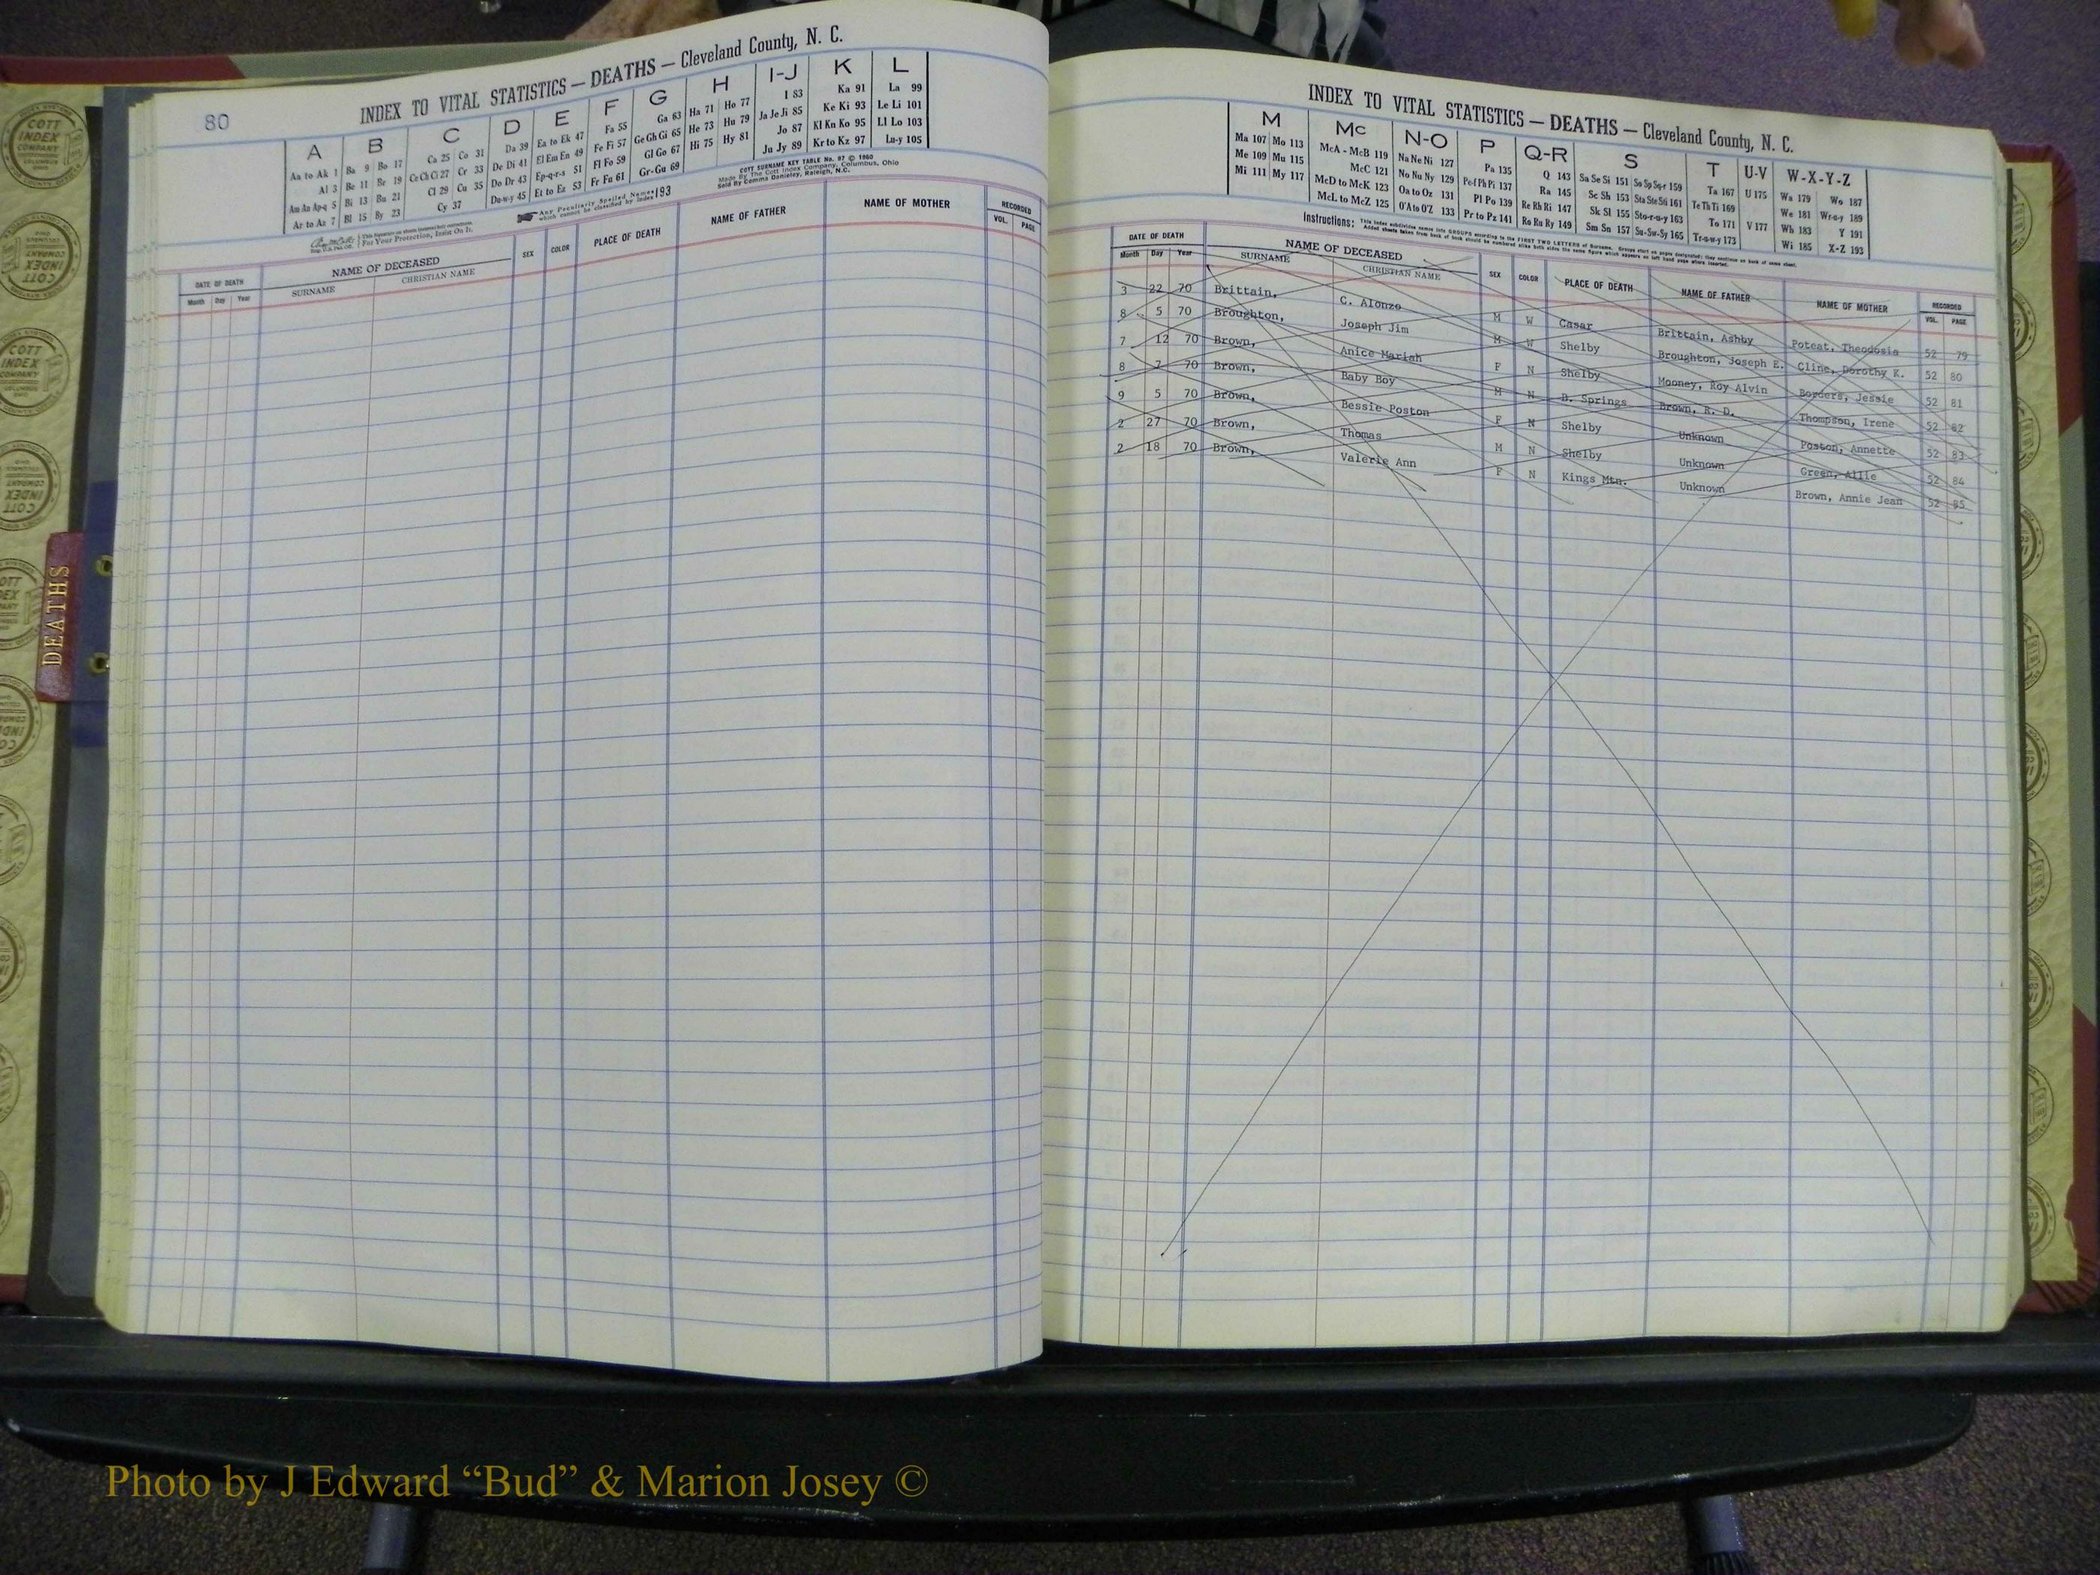 80
INDEX TO VITAL STATISTICS — DEATHS — Cleveland County, N. C.
A B C D E F G H I-J K L
Aa to Ak 1 Ba 9 Bo 17 Ca 25 Co 31 Da 39 Ea to Ek 47 Fa 55 Ga 63 Ha 71 Ho 77 I 83 Ka 91 La 99
Al 3 Be 11 Br 19 Ce Ch Ci 27 Cr 33 De Di 41 El Em En 49 Fe Fi 57 Ge Gh Gi 65 He 73 Hu 79 Ja Je Ji 85 Ke Ki 93 Le Li 101
Am An Ap-q 5 Bi 13 Bu 21 Cl 29 Cu 35 Do Dr 43 Ep-q-r-s 51 Fl Fo 59 Gl Go 67 Hi 75 Hy 81 Jo 87 Kl Kn Ko 95 Ll Lo 103
Ar to Az 7 Bl 15 By 23 Cy 37 Du-w-y 45 Et to Ez 53 Fr Fu 61 Gr-Gu 69 Ju Jy 89 Kr to Kz 97 Lu-y 105
COTT SURNAME KEY TABLE No. 87 © 1960
Made By The Cott Index Company, Columbus, Ohio
Sold By Comma Danieley, Raleigh, N.C.
For Your Protection, Insist On It.
Any Peculiarly Spelled Names which cannot be classified by Index 193
DATE OF DEATH NAME OF DECEASED SEX COLOR PLACE OF DEATH NAME OF FATHER NAME OF MOTHER RECORDED
Month Day Year SURNAME CHRISTIAN NAME VOL. PAGE
INDEX TO VITAL STATISTICS — DEATHS — Cleveland County, N. C.
M Mc N-O P Q-R S T U-V W-X-Y-Z
Ma 107 Mo 113 McA - McB 119 Na Ne Ni 127 Pa 135 Q 143 Sa Se Si 151 So Sp Sq-r 159 Ta 167 U 175 Wa 179 Wo 187
Me 109 Mu 115 McC 121 No Nu Ny 129 Pe-f Ph Pi 137 Ra 145 Sc Sh 153 Sta Ste Sti 161 Te Th Ti 169 We 181 Wr-u-y 189
Mi 111 My 117 McD to McK 123 Oa to Oz 131 Pl Po 139 Re Rh Ri 147 Sk Sl 155 Sto-r-u-y 163 To 171 V 177 Wh 183 Y 191
McL to McZ 125 O'A to O'Z 133 Pr to Pz 141 Ro Ru Ry 149 Sm Sn 157 Su-Sw-Sy 165 Tr-u-w-y 173 Wi 185 X-Z 193
Instructions: This index subdivides names into GROUPS according to the FIRST TWO LETTERS of Surname. Groups start on pages designated; they continue on back of same sheet.
Added sheets taken from back of book should be numbered alike both sides the same figure which appears on left hand page where inserted.
DATE OF DEATH NAME OF DECEASED SEX COLOR PLACE OF DEATH NAME OF FATHER NAME OF MOTHER RECORDED
Month Day Year SURNAME CHRISTIAN NAME VOL. PAGE
3 22 70 Brittain, C. Alonzo M W Casar Brittain, Ashby Poteat, Theodosia 52 79
8 5 70 Broughton, Joseph Jim M W Shelby Broughton, Joseph E. Cline, Dorothy K. 52 80
7 12 70 Brown, Anice Mariah F N Shelby Mooney, Roy Alvin Borders, Jessie 52 81
8 7 70 Brown, Baby Boy M N B. Springs Brown, R. D. Thompson, Irene 52 82
9 5 70 Brown, Bessie Poston F N Shelby Unknown Poston, Annette 52 83
2 27 70 Brown, Thomas M N Shelby Unknown Green, Allie 52 84
2 18 70 Brown, Valerie Ann F N Kings Mtn. Unknown Brown, Annie Jean 52 85
DEATHS
COTT INDEX COMPANY COLUMBUS OHIO
Photo by J Edward “Bud” & Marion Josey ©